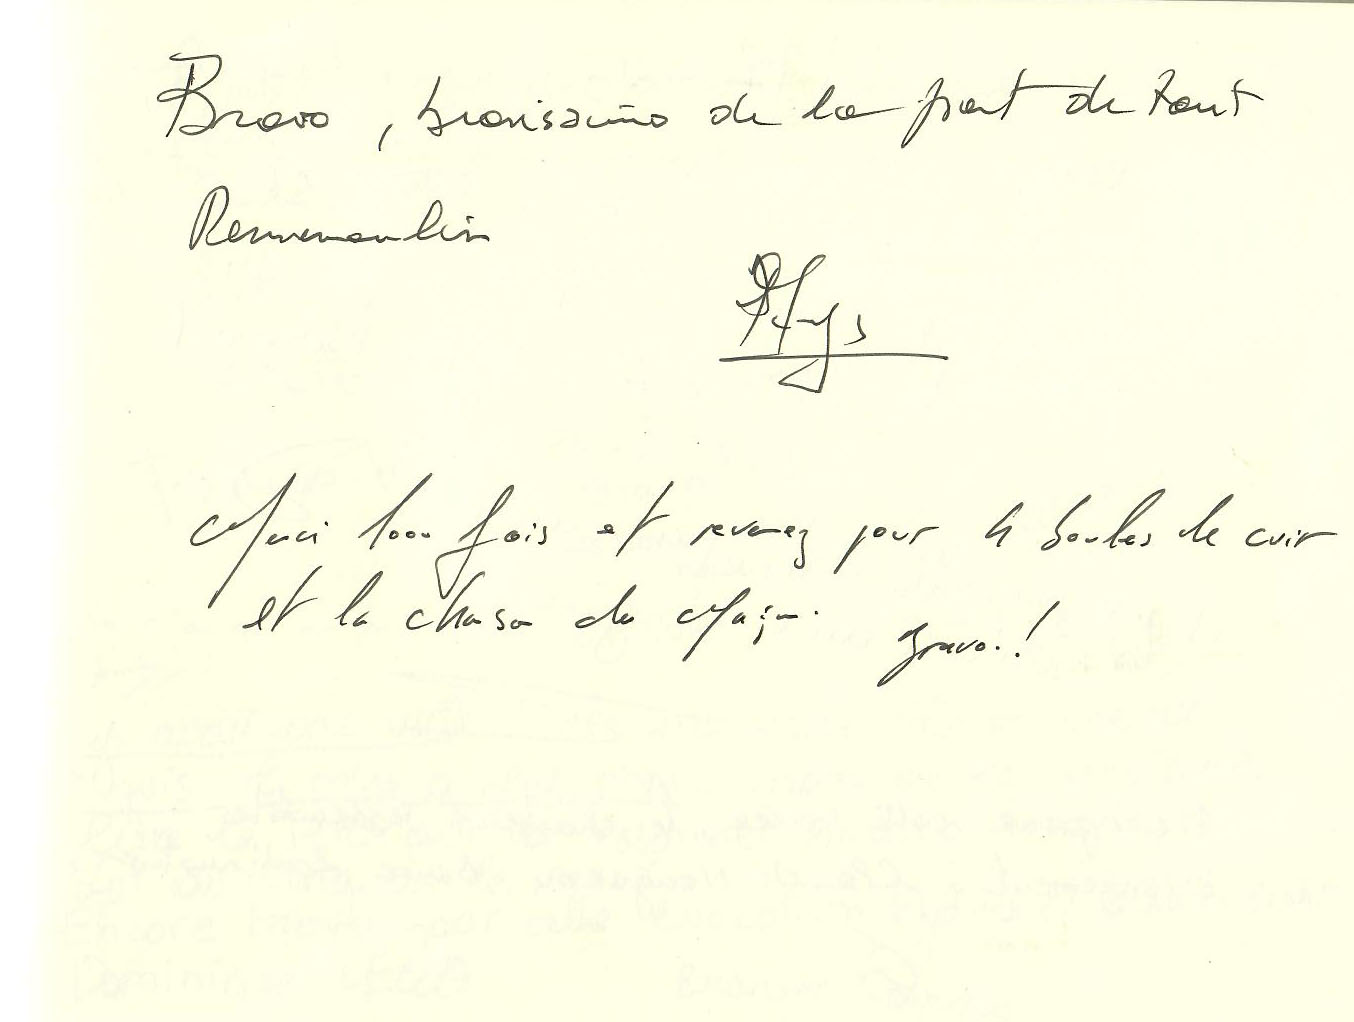 Bravo, bravissimo de la part de tout
Rennemoulin
Merci 1000 fois et revenez pour 4 boules de cuir
et la chanson de
Bravo.!